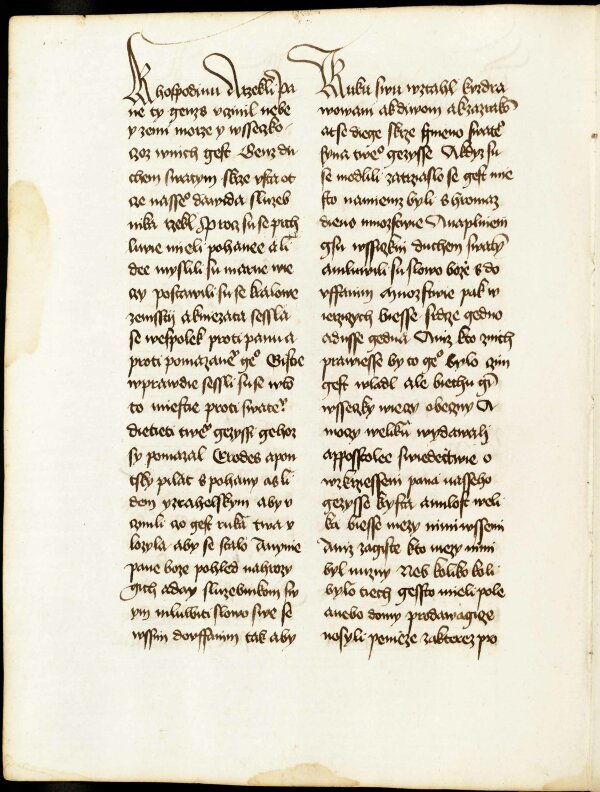 k hospodinu A rzekli Pa
ne ty genzs vginil nebe
y zemi morze y wsseczko
czoz wnich gest Genz du
chem swatym skrze vsta ot
cze nasseo dawida sluzeb
nika rzekl Procz su se prch
liwie mieli pohanee a li
dee myslili su marne wie
czy postawili su se kralowe
zemsstij a kniezata sessla
se wespolek proti panu a
proti pomazaneo geo Gistie
wprawdie sessli su se wto
to miestie proti swateo
dietieti tweo gezyssi gehoz
sy pomazal Erodes a pon
tsky pilat s pohany a s li
dem yzrahelskym aby v
cznili czo gest ruka twa v
lozyla aby se stalo A nynie
pane boze pohled na hrozy
gich a day sluzebnikom sw
ym mluwiti slowo swe se
wssim dovffanim tak aby
Ruku swu wztahl k vzdra
wowani a k diwom a k zazrako
at se diege skrze gmeno swateo
syna tweo gezysse A kdyz su
se modlili zatrzaslo se gest mie
sto na niemz byli shromaz
dieno mnozstwie A naplniem
gsu wssickni duchem swaty
a mluwili su slowo bozie s do
vffanim A mnozstwie pak w
ierzycych biesse srdce gedno
a dusse gedna Aniz kto z nich
prawiesse by to geo bylo czim
gest wladl ale biechu gi
wsseczky wieczy obeczny A
moczy weliku wydawali
apposstolee swiedectwie o
wzkrziessení pana nasseho
gezysse krysta a milost weli
ka biesse mezy nimi wssemi
Aniz zagiste kto mezy nimi
byl nuzny Neb koliko koli
bylo tiech gessto mieli pole
anebo domy prodawagicze
nosyli penieze za kterez pro